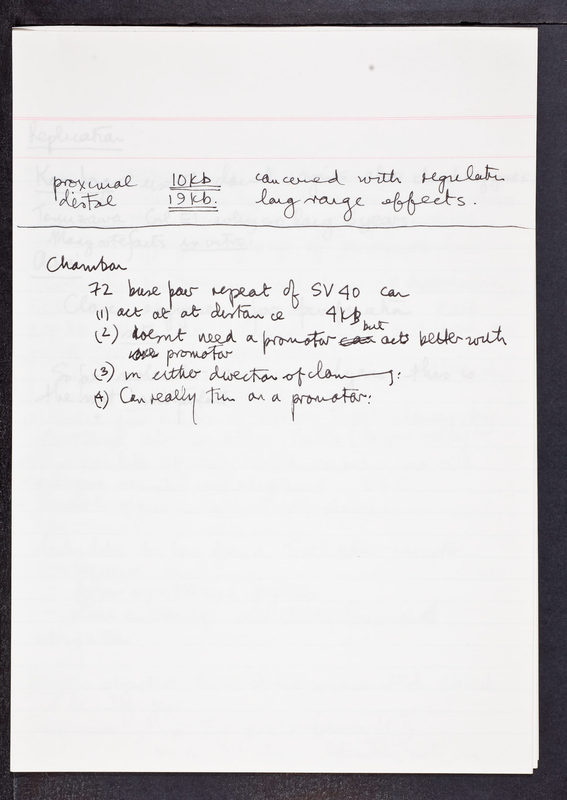 proximal 10 Kb concerned with regulation
distal 19 Kb. long range effects.
Chambon
72 base pair repeat of SV 40 can
(1) act at at distance 4Kb
(2) doesnt need a promotor but acts better with
promotor
(3) in either direction of clam
(4) Can really turn on a promotor: